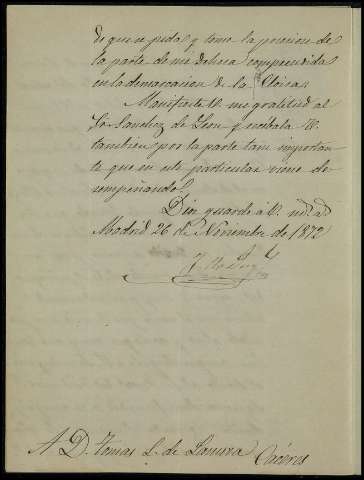 de que se pida y tome la posesion de
la parte de mi dehesa comprendida
en la demarcacion de la
Manifieste V. mi gratitud al
Sr Sanchez de Leon y recibala V.
tambien por la parte tan importan
te que en este particular viene de
sempeñando.
Dios guarde á V. ms. as.
Madrid 26 de Noviembre de 1872
A D. Tomas L. de
Cáceres